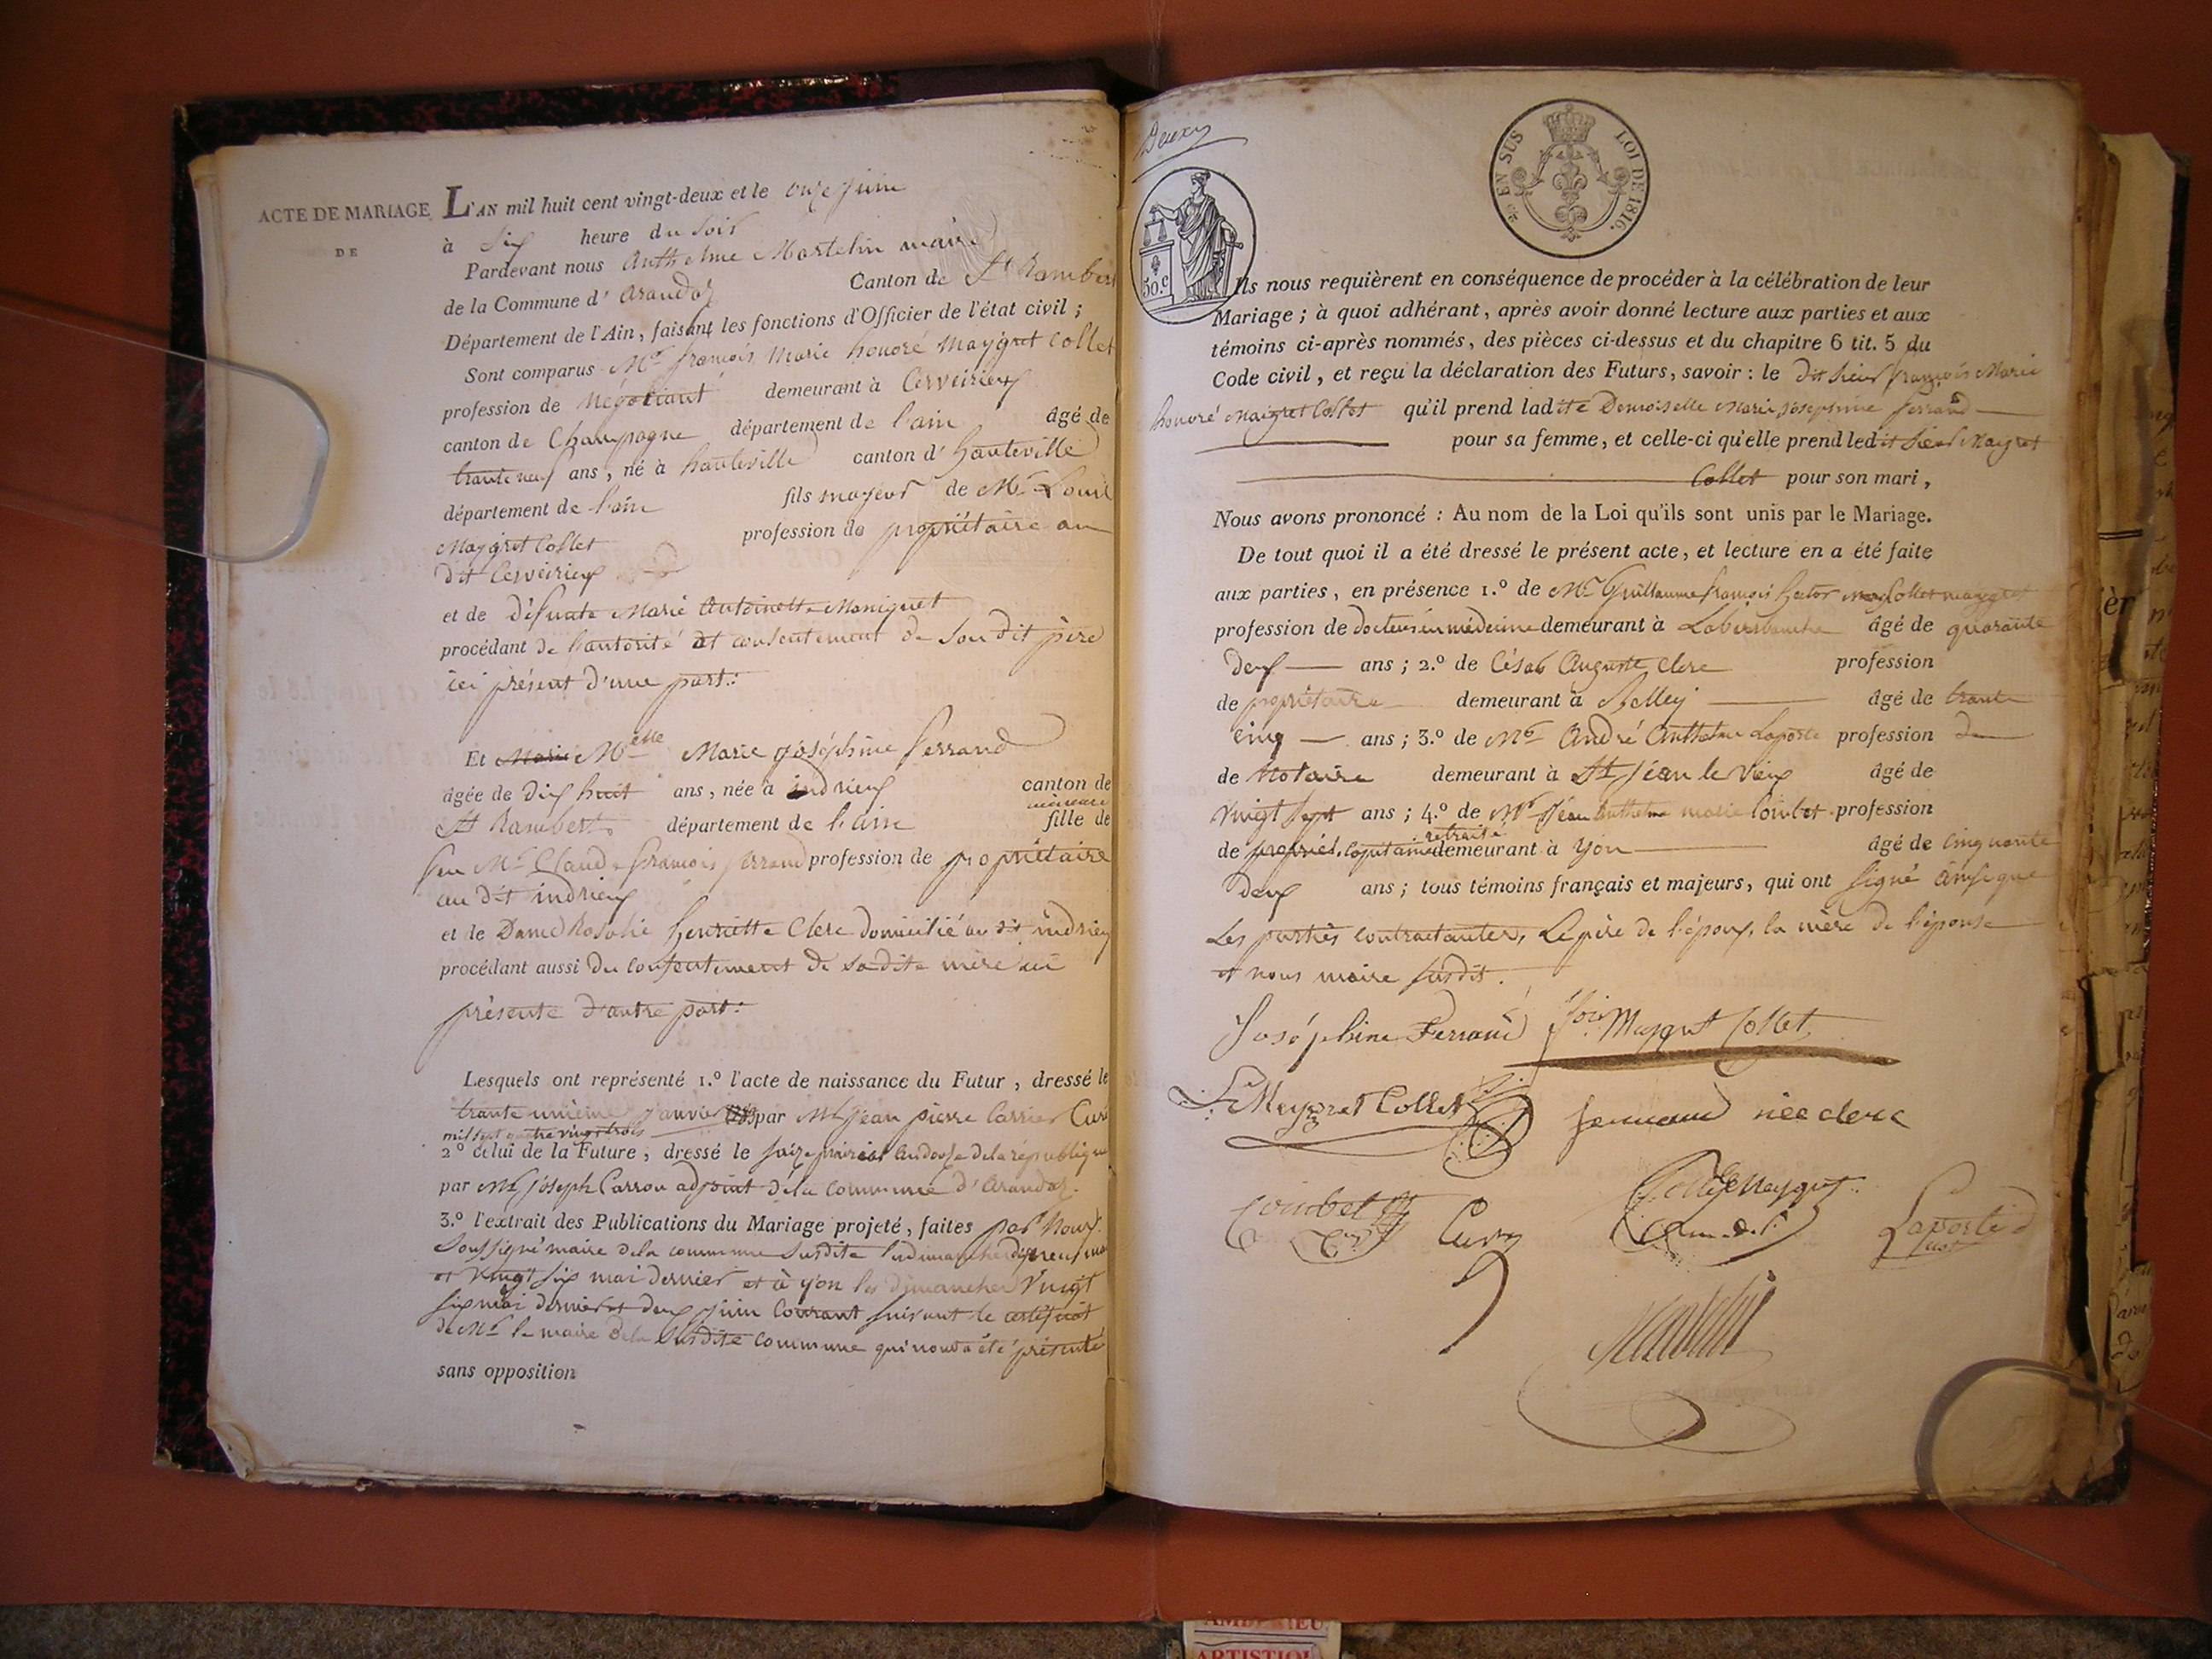 ACTE DE MARIAGE
DE
L'AN mil huit cent vingt-deux et le onze juin
à Six heure du soir
Pardevant nous Anthelme Martelin maire
de la Commune d' arandaz Canton de St Rambert
Département de l'Ain, faisant les fonctions d'Officier de l'état civil ;
Sont comparus Mr. françois Marie honoré Maygret Collet
profession de Négotiant demeurant à Cerveirieux
canton de Champagne département de l'ain âgé de
trante neuf ans, né à hauteville canton d' hauteville
département de l'ain fils mayeur de Mr Louis
Maygret Collet profession de propriétaire au
dit Cerveirieux
et de défunte Marie Antoinette Maniquet
procédant de l'autorité et consentement de son dit père
ici présent d'une part :
Et Marie Melle Marie joséphine ferrand
âgée de dix huit ans, née à indrieux canton de
mineure
St Rambert département de l'ain fille de
feu Mr Claude françois ferrand profession de propriétaire
au dit indrieux
et de Dame Rosalie henriette Clerc domicilié au dit indrieux
procédant aussi du consentement de sa dite mère ici
présente d'autre part :
Lesquels ont représenté 1.º l'acte de naissance du Futur, dressé le
trante unième janvier par Mr jean pierre Carrier Curé
mil sept quatre vingt trois
2º celui de la Future, dressé le saize prairial an douze de la république
par Mr joseph Carron adjoint de la commune d'arandaz.
3.º l'extrait des Publications du Mariage projeté, faites par Nous
Soussigné maire de la commune susdite les dimanches dix neuf mai
et vingt six mai dernier et à yon les dimanches vingt
six mai dernier et deux juin courant suivant le certificat
de Mr le maire de la susdite commune qui nous a été présenté
sans opposition
Deux
EN SUS LOI DE 1816.
50.c
Ils nous requièrent en conséquence de procéder à la célébration de leur
Mariage ; à quoi adhérant, après avoir donné lecture aux parties et aux
témoins ci-après nommés, des pièces ci-dessus et du chapitre 6 tit. 5 du
Code civil, et reçu la déclaration des Futurs, savoir : le dit sieur françois Marie
honoré Maigret Collet qu'il prend ladite Demoiselle Marie joséphine ferrand
pour sa femme, et celle-ci qu'elle prend ledit sieur Maygret
Collet pour son mari,
Nous avons prononcé : Au nom de la Loi qu'ils sont unis par le Mariage.
De tout quoi il a été dressé le présent acte, et lecture en a été faite
aux parties, en présence 1.º de Mr Guillaume françois hector Collet maygret
profession de docteur en médecine demeurant à âgé de quarante
deux ans ; 2.º de César Auguste Clerc profession
de propriétaire demeurant à Belley âgé de trante
cinq ans ; 3.º de Mr André Anthelme Laporte profession de
de Notaire demeurant à St jean le Vieux âgé de
vingt sept ans ; 4.º de Mr jean Anthelme marie Combet profession
retraité
de propriét. Capitaine demeurant à yon âgé de cinquante
deux ans ; tous témoins français et majeurs, qui ont signé ainsi que
Les parties contractantes, Le père de l'époux, la mère de l'épouse
et nous maire susdit.
Joséphine Ferrand fois Maygret Collet
L Meygret Collet ferrand née clerc
Combet Collet Meygret Laporte
Martelin
ARTISTIQU